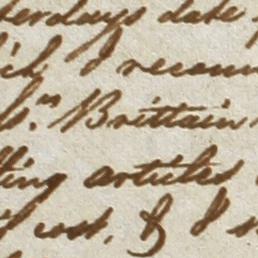 terdays date
ich I recom
ls.rs Brittain
ting articles
cost, & I